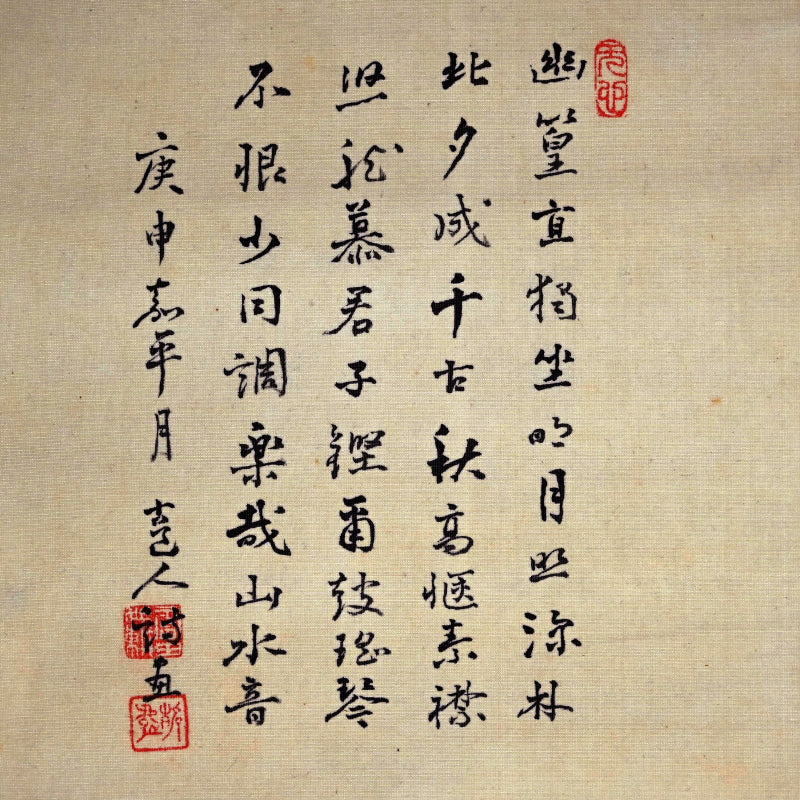 幽篁宜獨坐明月照深林
此夕千古秋高愜素襟
悠然慕君子鏗爾鼓瑤琴
不恨少同調楽哉山水音
庚申嘉平月 人詩画